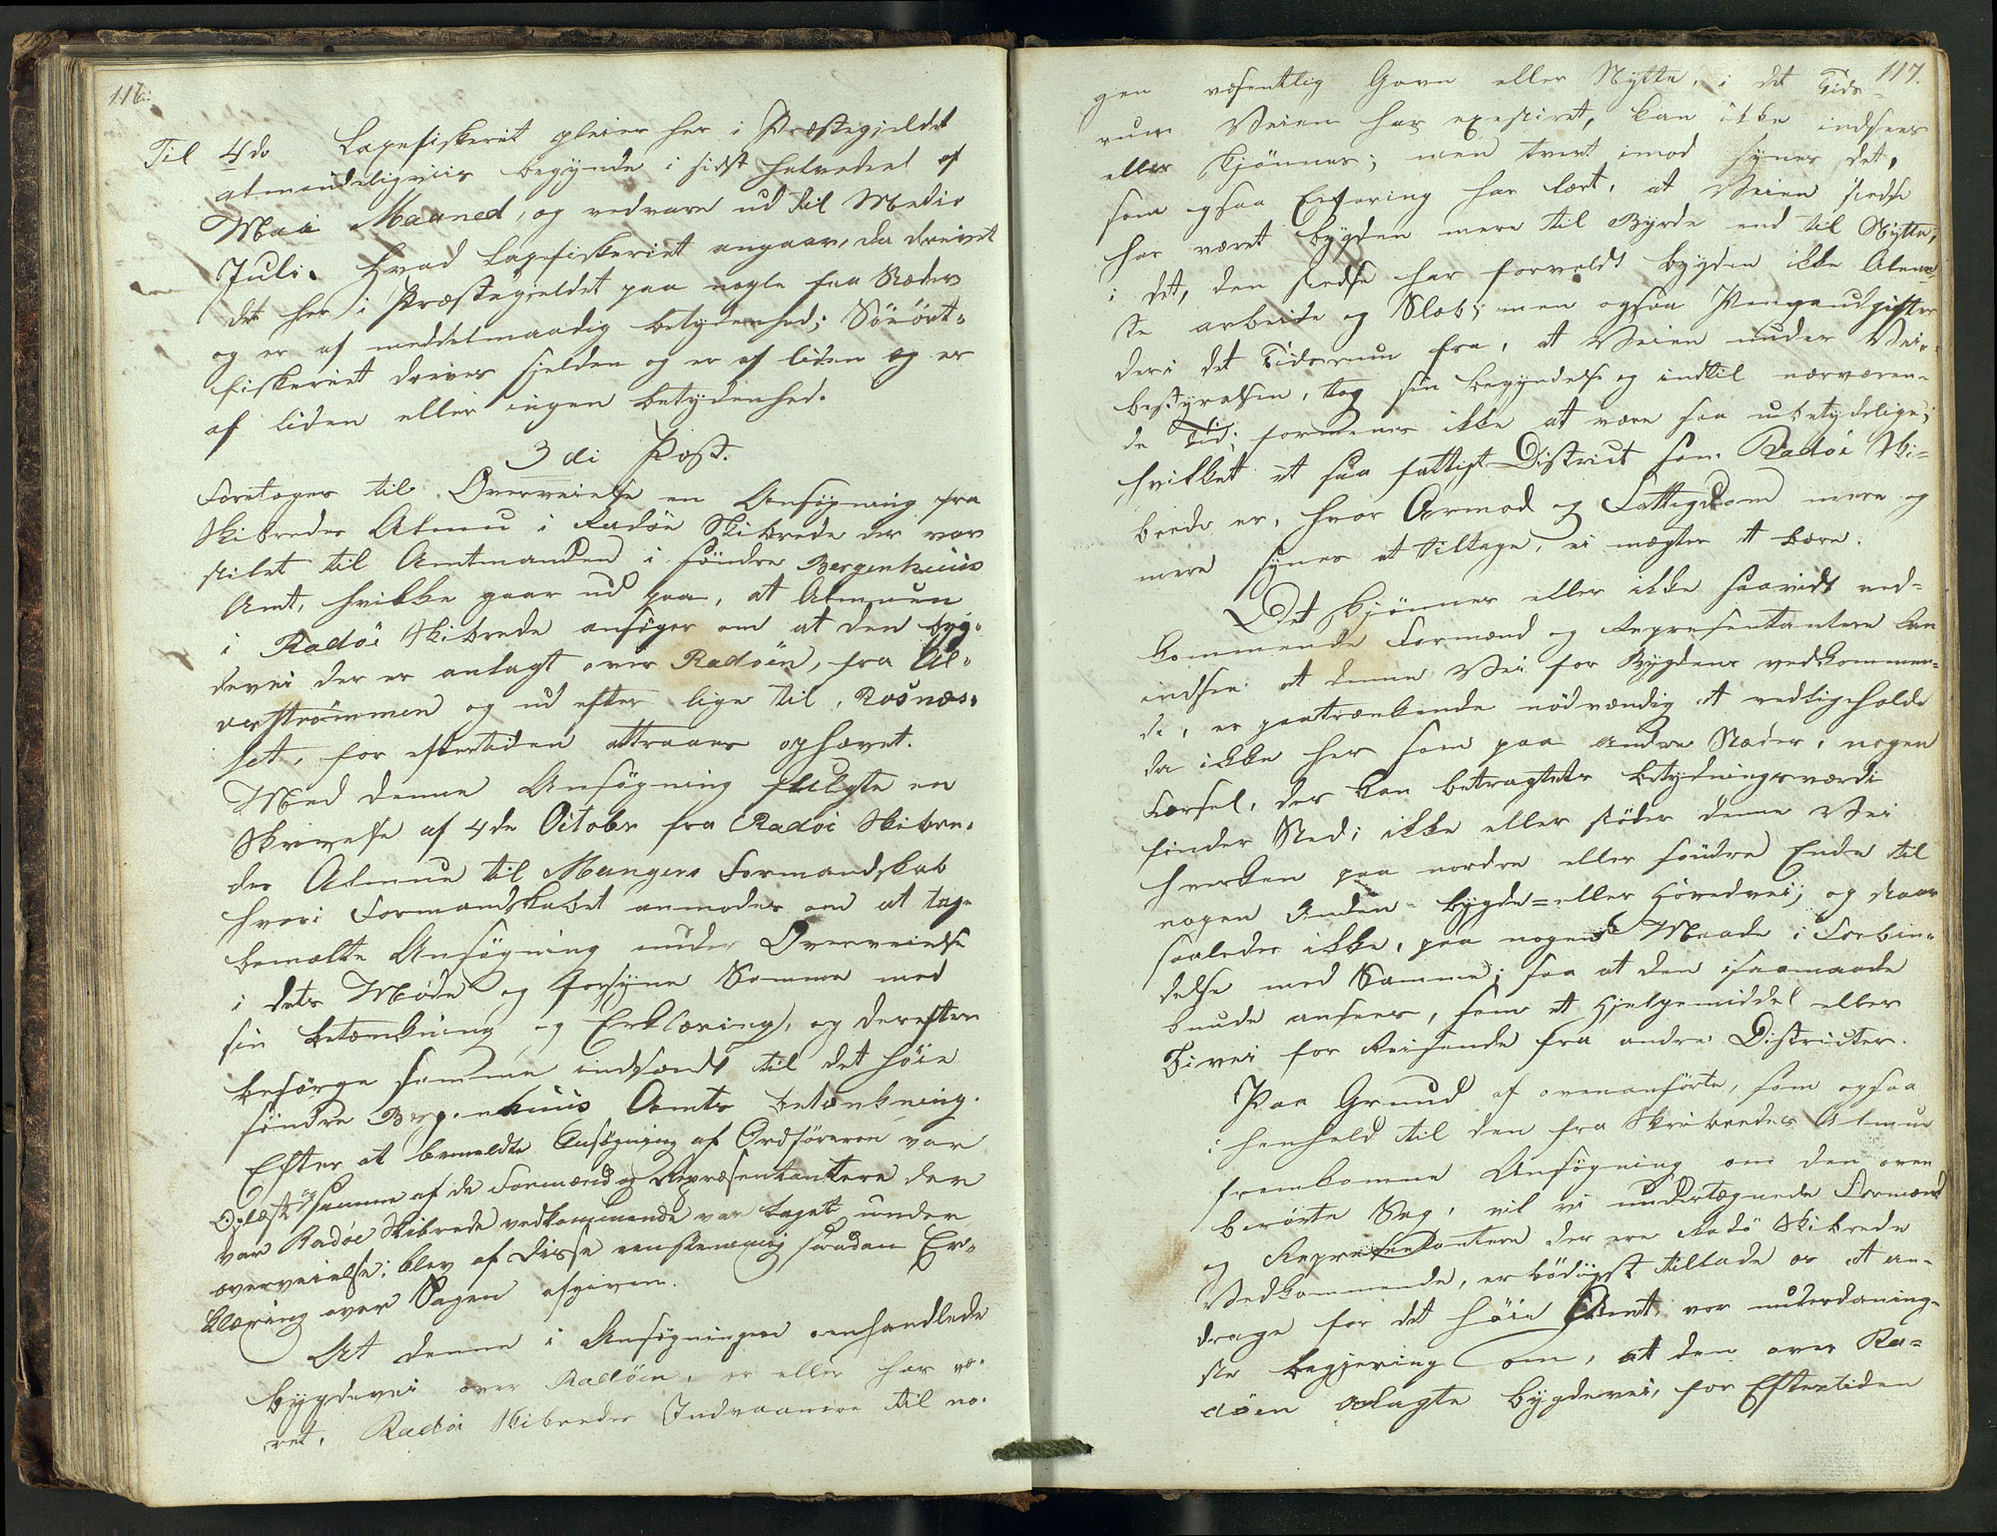 116.
Til 4de Laxefiskeriet pleier her i Præstegjeldet
almindeligviis begynde i sidste halvedeel af
Mai Maaned, og vedvare ud til Medio
Juli. Hvad Laxefiskeriet angaar, da drives
det her i Præstegjeldet paa nogle faa Stæder
og er af middelmaadig betydenhed; Söeört-
fiskeriet drives sjelden og er af liden og er
af liden eller ingen betydenhed.
3die Post.
Foretoges til Overveielse en Ansögning fra
Skibredes Almue i Radöe Skibrede der var
stilet til Amtmanden i söndre Bergenhuus
Amt, hvilke gaar ud paa, at Almuen
i Radöe Skibrede ansöger om at den byg-
devei der er anlagt over Radöen, fra Al-
verströmmen og ud efter lige til Rosnæs-
set, for eftertiden attraaes ophævet.
Med denne Ansögning fulgte en
Skrivelse af 4de Octobr fra Radöe Skibre-
des Almue til Mangers Formandskab
hvori Formandskabet anmodes om at tage
bemælte Ansögning under Overveielse
i dets Möde og forsyne Samme med
sin betænkning og Erklæring, og derefter
besörge samme indsendt til det höie
söndre Bergenhuus Amts betænkning.
Efter at bemeldte Ansögning af Ordföreren var
Oplæst og samme af de Formænd og Repræsentantere der
var Radöe Skibrede vedkommende var taget under
overveielse; blev af disse eenstemmig saadan Er-
klæring over Sagen afgiven.
At denne i Ansögningen omhandlede
bygdevei over Radöen, er eller har væ-
ret, Radöe Skibredes Indvaanere til no-
117.
gen væsentlig Gavn eller Nytte, i det Tids-
rum Veien har existiret, kan ikke indsees
eller skjönnes; men tvert imod synes det,
som ogsaa Erfaring har lært, at Veien stedse
har været bygden mere til Byrde end til Nytte,
i det, den stedse har forvoldt bygden ikke Alene-
ste arbeide og Slæb; men ogsaa Pengeudgifter
der i det Tidsrum fra, at Veien under Vei-
bestyrelsen, tog sin begyndelse og indtil nærværen-
de Tid; formenes ikke at være saa ubetydelige;
hvilket et saa fattigt District som Radöe Ski-
brede er, hvor Armod og Fattigdom mere og
mere synes at tiltage, ei mægter at bære.
Det skjönner eller ikke saavidt ved-
kommende Formænd og Representantere kan
indsee at denne Vei for Bygdens vedkommen-
de, er paatrænkende nödvændig at vedligeholde
da ikke her som paa andre Stæder, nogen
Færsel, der kan betragtets betydningsværdi
finder Sted; ikke eller stöder denne Vei
hverken paa nordre eller söndre Ende til
nogen Anden bygde= eller Hovedvei; og staar
saaledes ikke, paa nogen Maade i Forbin-
delse med Samme; saa at den isaamaade
kunde ansees, som et Hjelpemiddel eller
Bivei for Reisende fra andre Districter.
Paa Grund af ovenanförte, som ogsaa
i henhold til den fra Skibredes Almue
fremkomne Ansögning om den oven
berörte Sag, vil vi undertegnede Formænd
og Repræsentantere der ere Radö Skibrede
Vedkommende, erbödigst tillade os at an-
drage for det höie Amt, vor underdanig-
ste begjering om, at den over Ra-
döen anlagte bygdevei, for Eftertiden